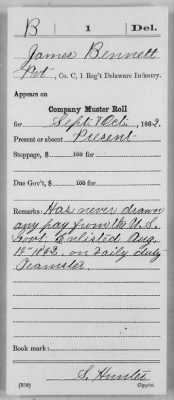 B 1 Del.
James Bennett
Pvt, Co. C, 1 Reg't Delaware Infantry.
Appears on
Company Muster Roll
for Sept & Oct, 1862.
Present or absent Present
Stoppage, $ 100 for
Due Gov't, $ 100 for
Remarks: Has never drawn
any pay from the U. S.
Govt. Enlisted Aug.
12" 1862, on daily duty
Teamster.
Book mark:
S. Hunter
(358) Copyist.